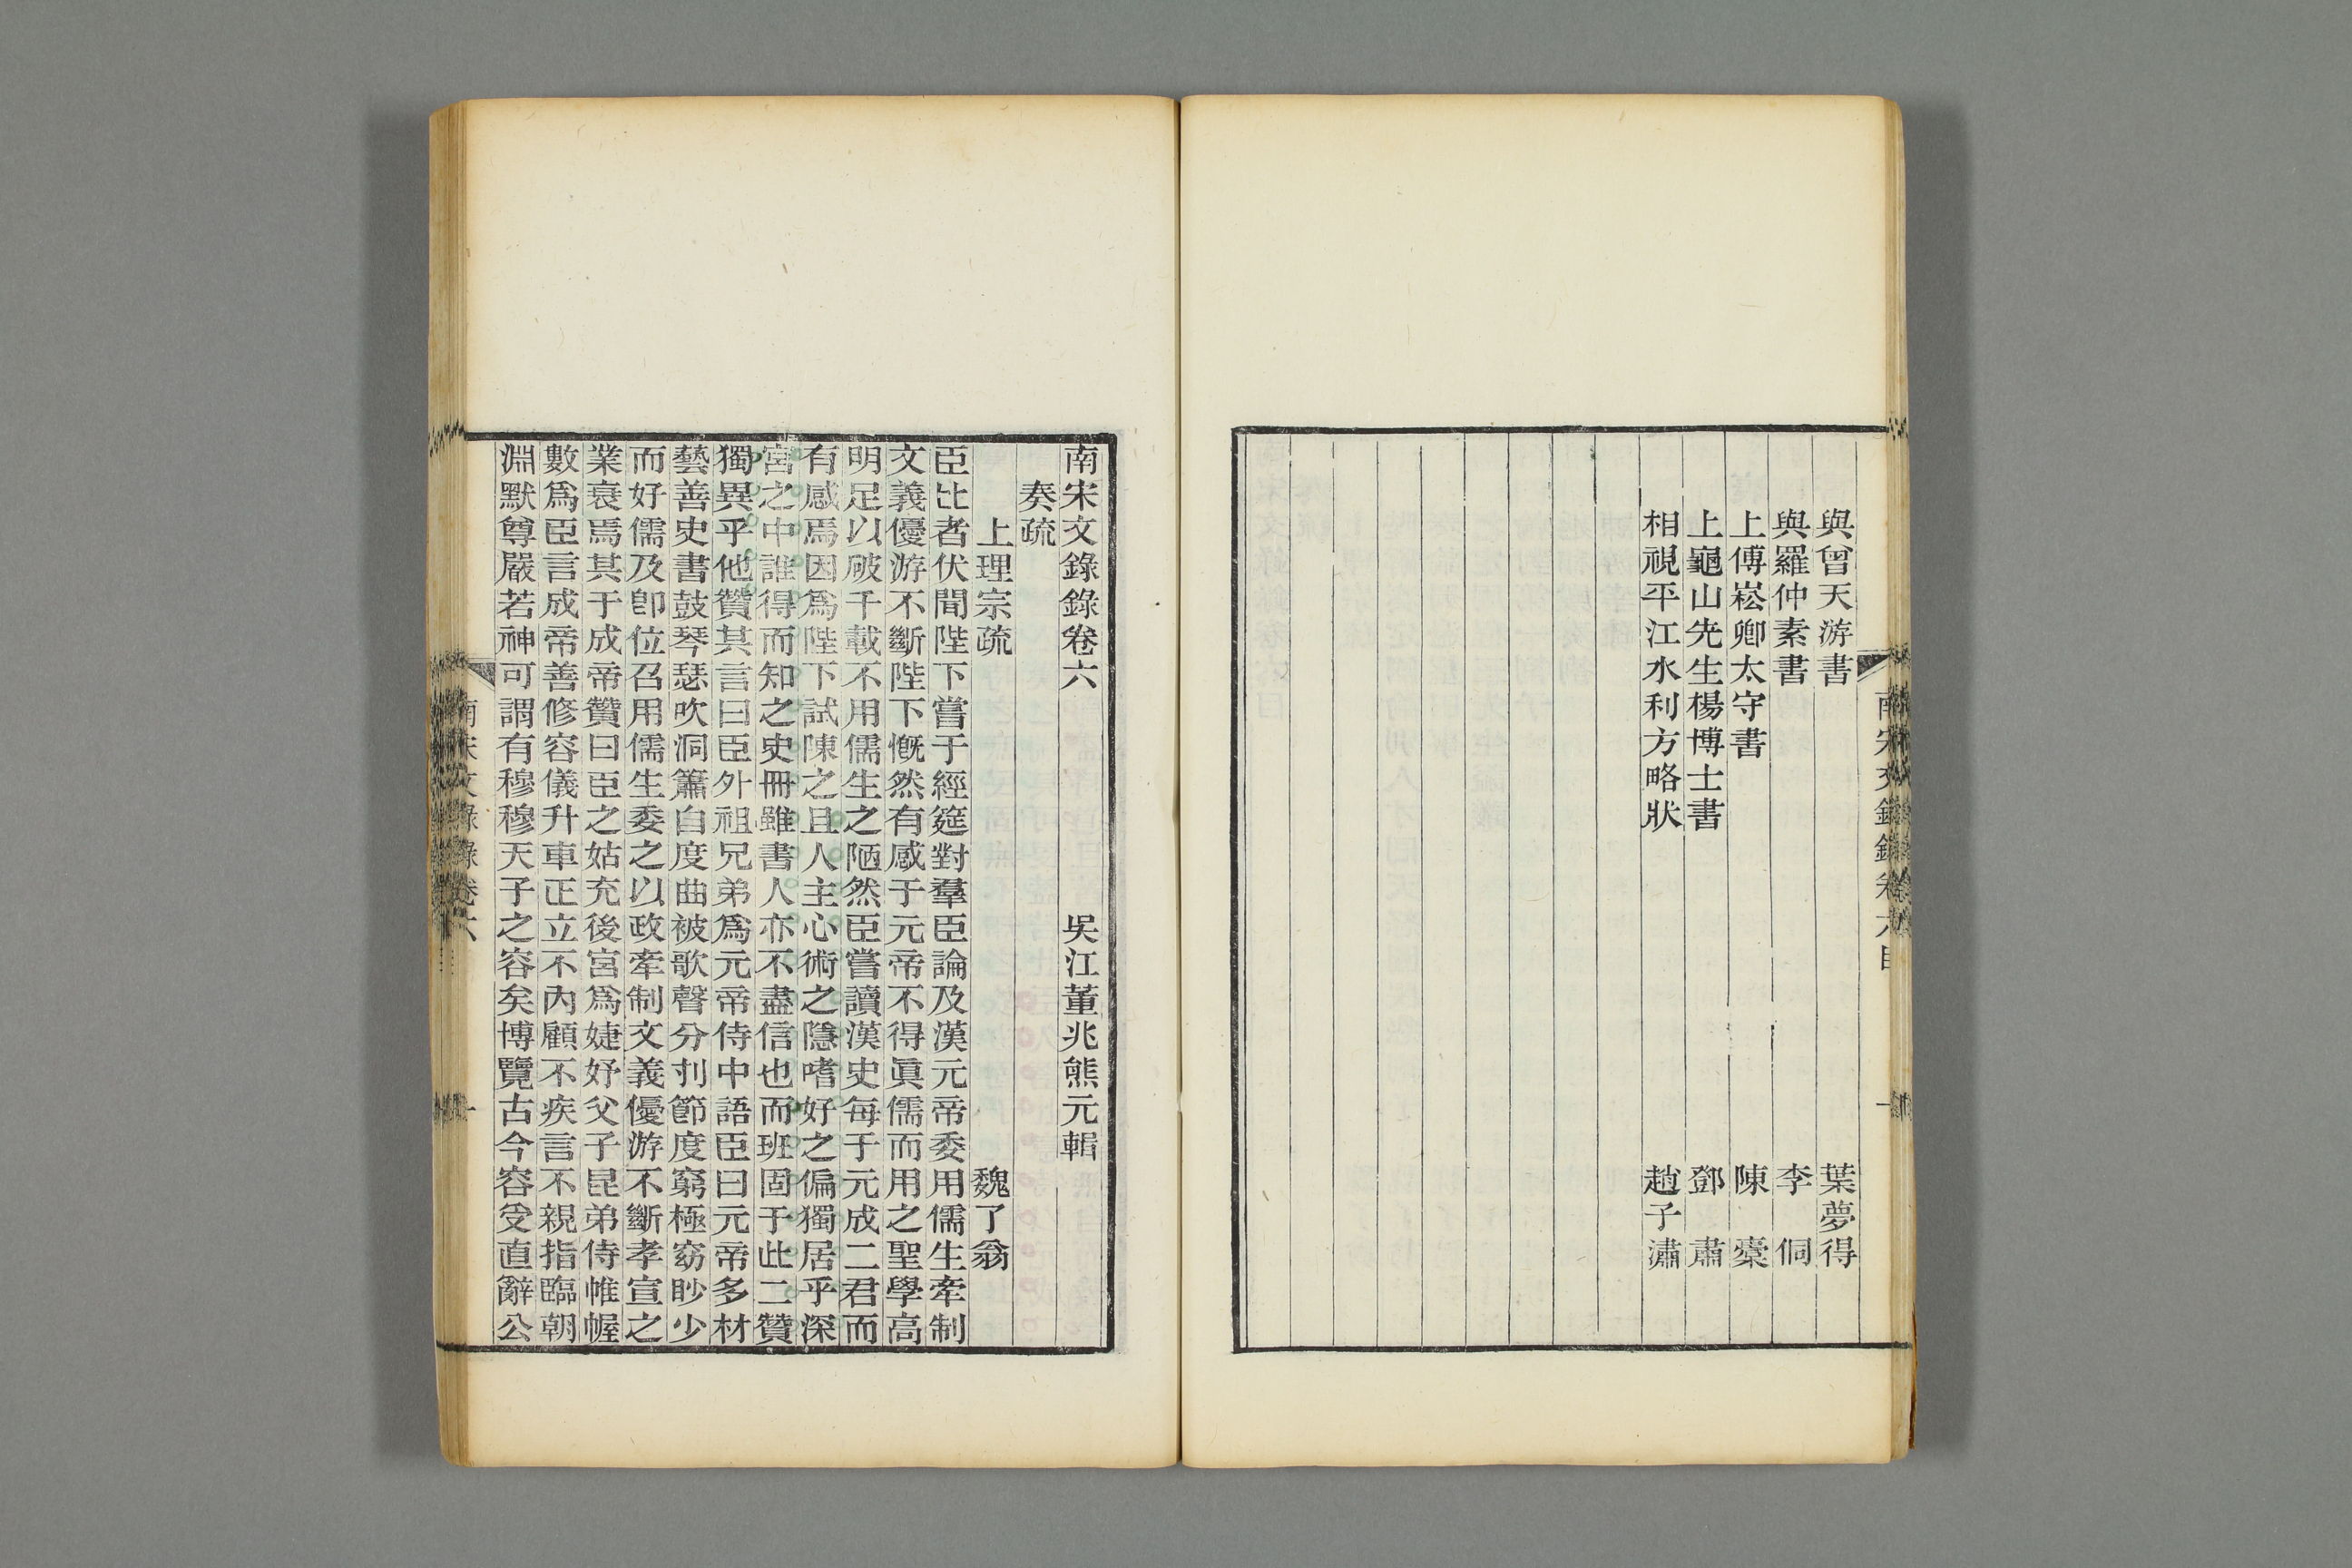 與曾天游書 葉夢得
與羅仲素書 李侗
上傅崧卿太守書 陳櫜
上龜山先生楊博士書 鄧肅
相視平江水利方略狀 趙子潚
南宋文錄錄卷六 吳江董兆熊元輯
奏疏
上理宗疏 魏了翁
臣比者伏聞陛下嘗于經筵對羣臣論及漢元帝委用儒生牽制
文義優游不斷陛下慨然有感于元帝不得眞儒而用之聖學高
明足以破千載不用儒生之陋然臣嘗讀漢史每于元成二君而
有感焉因爲陛下試陳之且人主心術之隱嗜好之偏獨居乎深
宮之中誰得而知之史冊雖書人亦不盡信也而班固于此二贊
獨異乎他贊其言曰臣外祖兄弟爲元帝侍中語臣曰元帝多材
藝善史書鼓琴瑟吹洞簫自度曲被歌聲分刌節度窮極窈眇少
而好儒及卽位召用儒生委之以政牽制文義優游不斷孝宣之
業衰焉其于成帝贊曰臣之姑充後宮爲婕妤父子昆弟侍帷幄
數爲臣言成帝善修容儀升車正立不內顧不疾言不親指臨朝
淵默尊嚴若神可謂有穆穆天子之容矣博覽古今容受直辭公
南宋文錄錄卷六 一